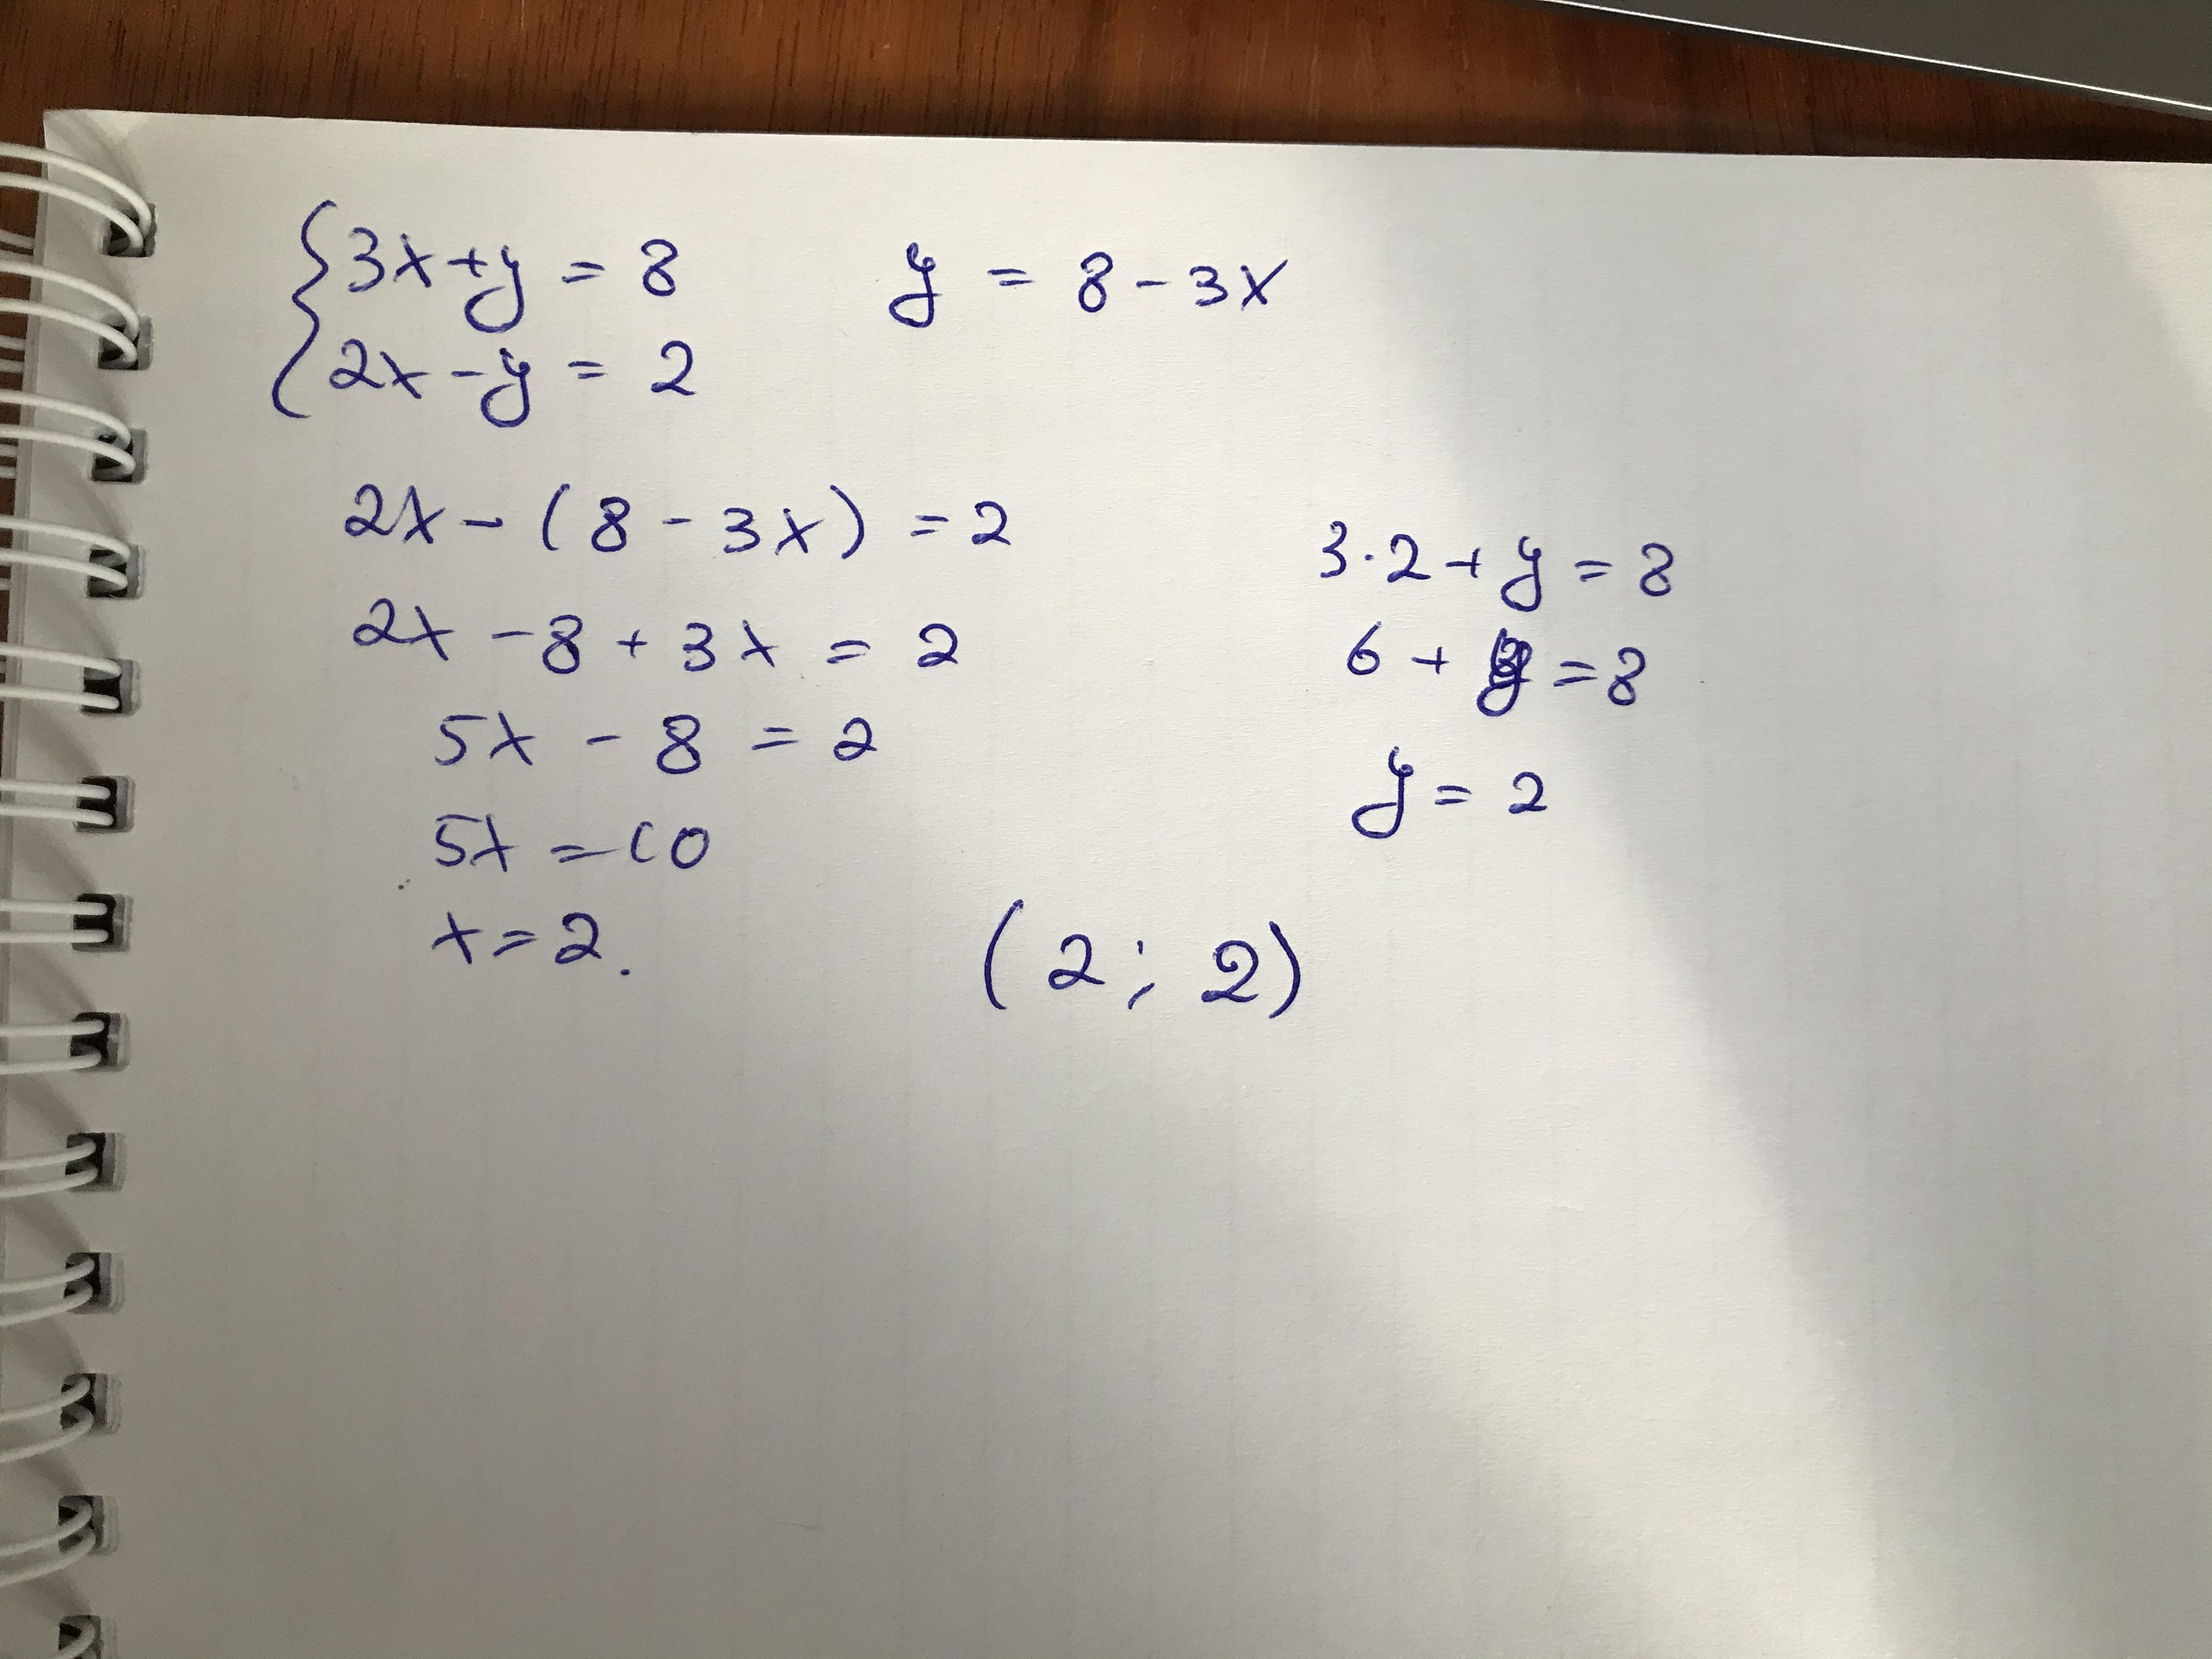 3x+y = 8
2x-y = 2
y = 8-3x
2x-(8-3x) = 2
2x-8+3x = 2
5x-8 = 2
5x = 10
x = 2.
3·2+y = 8
6+y = 8
y = 2
(2; 2)